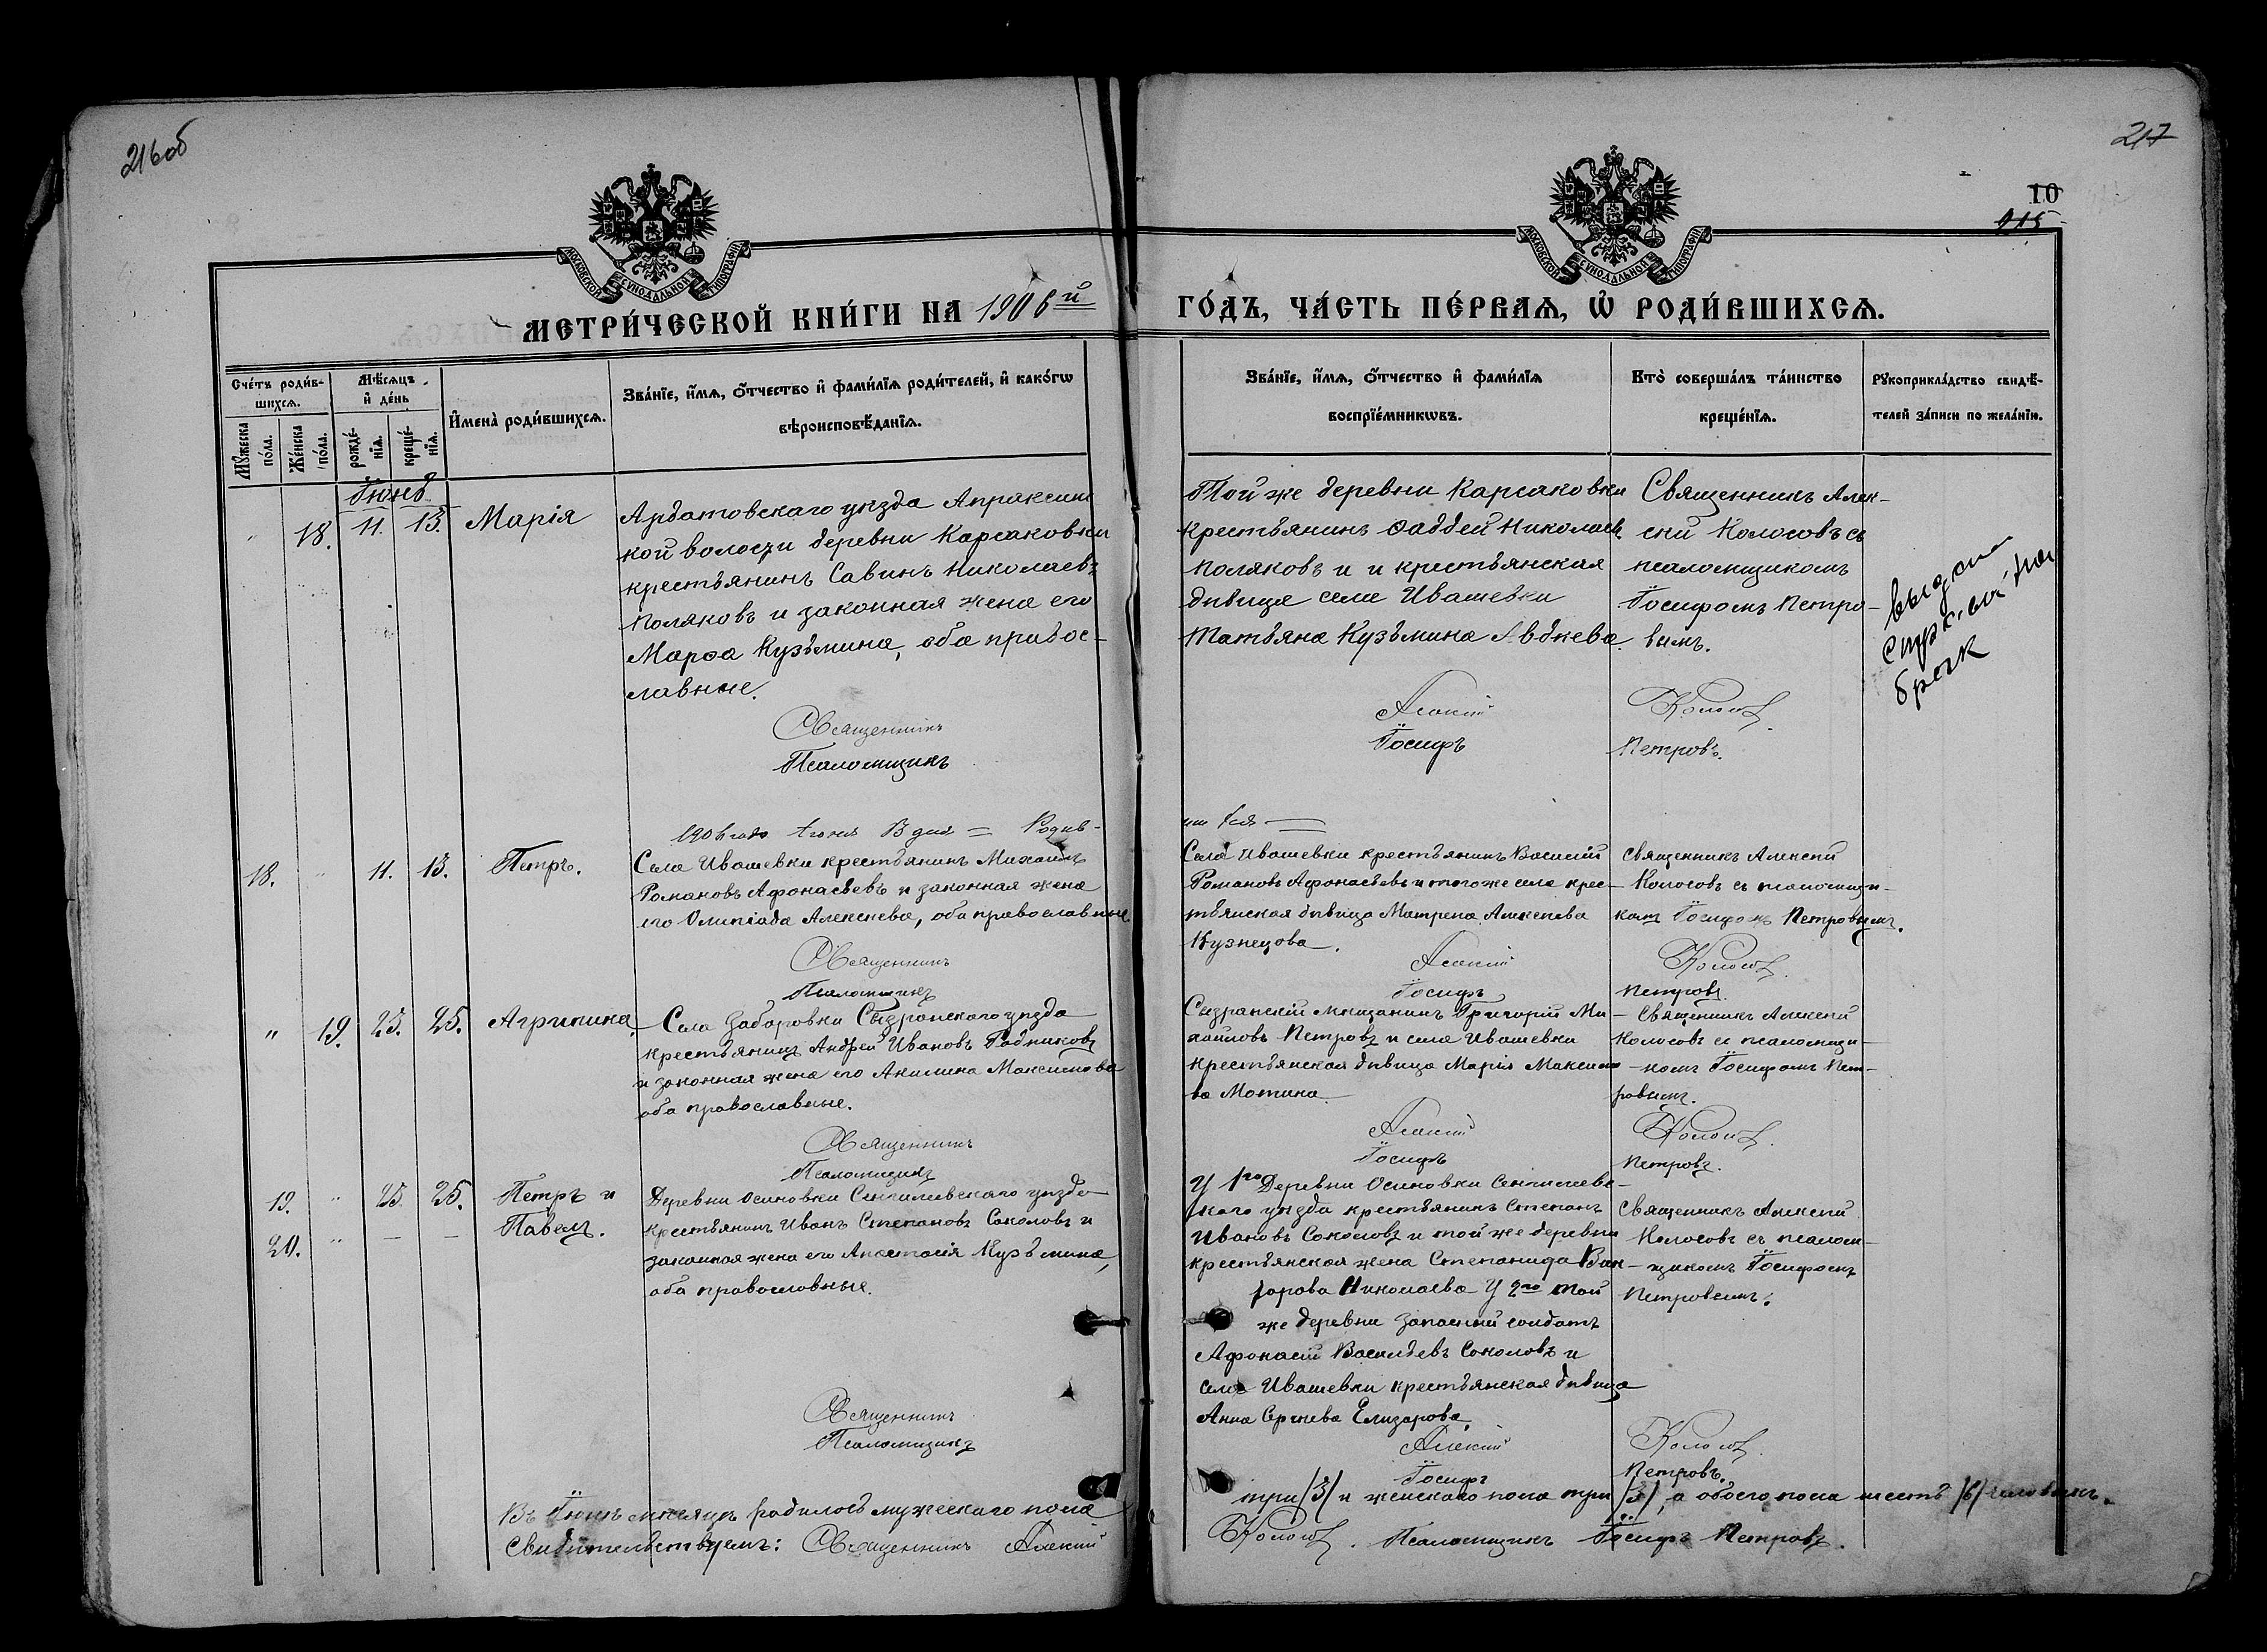 216об
217
10
415
МОСКОВСКОЙ СѴНОДАЛЬНОЙ ТИПОГРАФІИ
МОСКОВСКОЙ СѴНОДАЛЬНОЙ ТИПОГРАФІИ
МЕТРИ́ЧЕСКОЙ КНИ́ГИ НА 1906й
ГО́ДЪ, ЧА́СТЬ ПЕ́РВАѦ, Ѽ РОДИ́ВШИХСѦ.
Сче́тъ роди́в-
шихсѧ.
Мꙋ́жеска по́ла.
Же́нска по́ла.
Мѣ́сѧцъ и҆ де́нь
рожде́-
нїѧ.
креще́-
нїѧ.
И҆мена̀ роди́вшихсѧ.
Зва́нїе, и҆́мѧ, ѻ҆́тчество и҆ фами́лїѧ роди́телей, и҆ како́гѡ
вѣроисповѣ́данїѧ.
Зва́нїе, и҆́мѧ, ѻ҆́тчество и҆ фами́лїѧ
воспрїе́мникѡвъ.
Кто̀ соверша́лъ та́инство
креще́нїѧ.
Рꙋкоприкла́дство свидѣ́-
телей за́писи по жела́нїю.
Іюнь
18. 11. 13. Марія
Ардатовскаго уѣзда Апраксинс
кой волости деревни Карсаковки
крестьянинъ Савинъ Николаевъ
Поляковъ и законная жена его
Марѳа Кузьмина, оба правос-
лавные.
Священникъ
Псаломщикъ
Той же деревни Карсаковки
крестьянинъ Ѳаддей Николаев.
Поляковъ и и крестьянская
дѣвица села Ивашевки
Татьяна Кузьмина Авдѣева.
Алексій
Іосифъ
Священникъ Алек-
сѣй Колосовъ съ
псаломщикомъ
Іосифомъ Петро-
вымъ.
Колосовъ.
Петровъ.
выдана
брак
1906 года Іюня 13 дня = Родив-
шіяся
18. 11. 13. Петръ.
Села Ивашевки крестьянинъ Михаилъ
Романовъ Афонасьевъ и законная жена
его Олипіада Алексѣева, оба православные.
Священникъ
Псаломщикъ
Села Ивашевки крестьянинъ Василій
Романовъ Афонасьевъ и того же села крес-
тьянская дѣвица Матрена Алексѣева
Кузнецова.
Алексій
Іосифъ
Священникъ Алексѣй
Колосовъ съ псаломщи-
комъ Іосифомъ Петровымъ.
Колосовъ.
Петровъ.
" 19. 23. 25. Агрипина
Села Заборовки Сызранскаго уѣзда
крестьянинъ Андрей Ивановъ Радниковъ
и законная жена его Акилина Максимова
оба православные.
Священникъ
Псаломщикъ
Сызранскій мѣщанинъ Григорій Ми-
хайловъ Петровъ и села Ивашевки
крестьянская дѣвица Марія Максимо
ва Мотина.
Алексій
Іосифъ
Священникъ Алексѣй
Колосовъ съ псаломщи-
комъ Іосифомъ Пет-
ровымъ.
Колосовъ.
Петровъ.
19. " 25 25. Петръ и
20. " — — Павелъ.
Деревни Осиновки Сенгилеевскаго уѣзда
крестьянинъ Иванъ Степановъ Соколовъ и
законная жена его Анастасія Кузьмина,
оба православные.
Священникъ
Псаломщикъ
У 1го Деревни Осиновки Сенгилеевс-
каго уѣзда крестьянинъ Степанъ
Ивановъ Соколовъ и той же деревни
крестьянская жена Степанида Вик-
торова Николаева У 2го той
же деревни запасный солдатъ
Афонасій Васильевъ Соколовъ и
села Ивашевки крестьянская дѣвица
Анна Сергѣева Елизарова.
Алексій
Іосифъ
Священникъ Алексѣй
Колосовъ съ псалом-
щикомъ Іосифомъ
Петровымъ.
Колосовъ.
Петровъ.
Въ Іюнѣ мѣсяцѣ родилось мужескаго пола три /3/ и женскаго пола три /3/, а обоего пола шесть /6/ человѣкъ.
Свидѣтельствуемъ: Священникъ Алексій Колосовъ. Псаломщикъ Іосифъ Петровъ.